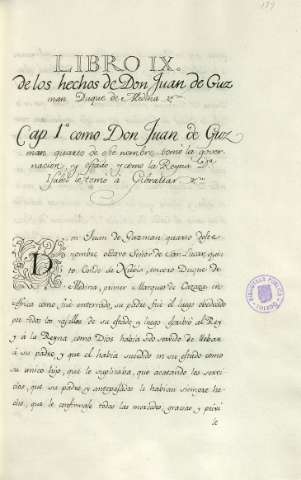 LIBRO IX.
de los hechos de Don Juan de Guz
man Duque de Medina &c.
Cap 1º como Don Juan de Guz
man quarto de este nombre tomó la gover
nacion, y estado, y como la Reyna
Ysabel le tomó á Gibraltar
Don Juan de Guzman quarto deste
nombre, octavo Señor de San Lucar, quin
to Conde de Niebla, tercero Duque de
Medina, primer Marques de Cazaza, en
como fue enterrado, su padre fue el luego obedecido
por todos los vasallos de su estado, y luego escrivió al Rey
y á la Reyna, como Dios havia sido servido de llebar
á su padre, y que el havia sucedido en su estado como
su unico hijo, que le suplicaba, que acatando los servi
cios, que su padre, y antepasados le habian siempre he
cho, que le confirmase todas las mercedes, gracias, y privi
le
BIBLIOTECA PUBLICA
TOLEDO